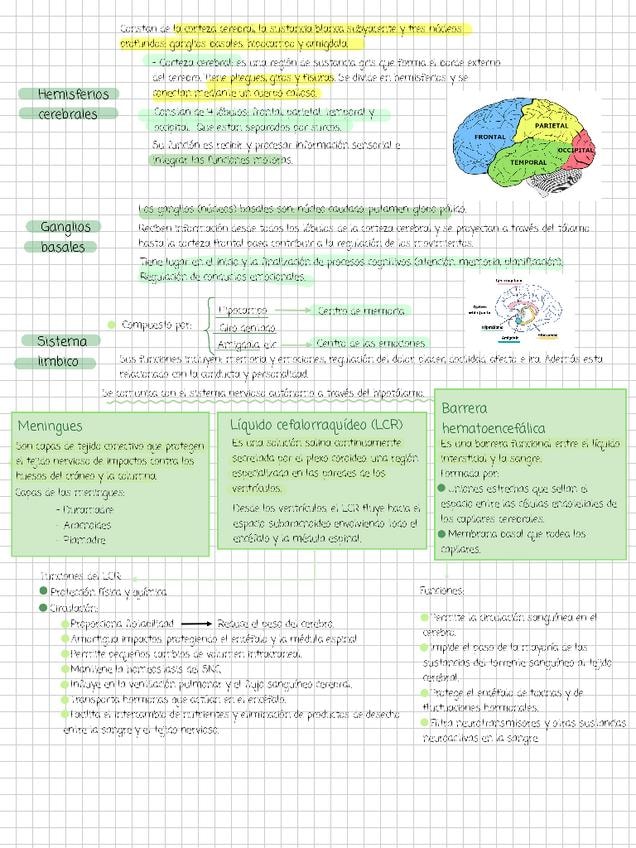 Constan de la corteza cerebral, la sustancia blanca subyacente y tres núcleos
profundos: ganglios basales, hipocampo y amígdala.
- Corteza cerebral: es una región de sustancia gris que forma el borde externo
del cerebro. Tiene pliegues, giros y fisuras. Se divide en hemisferios y se
conectan mediante un cuerpo calloso.
Hemisferios
cerebrales
Constan de 4 lóbulos: frontal, parietal, temporal y
occipital. Que están separados por surcos.
Su función es recibir y procesar información sensorial e
integrar las funciones motoras.
FRONTAL
PARIETAL
OCCIPITAL
TEMPORAL
Ganglios
basales
Los ganglios (núcleos) basales son: núcleo caudado, putamen, globo pálido.
Reciben información desde todos los lóbulos de la corteza cerebral y se proyectan a través del tálamo
hasta la corteza frontal para contribuir a la regulación de los movimientos.
Tiene lugar en el inicio y la finalización de procesos cognitivos (atención, memoria, planificación).
Regulación de conductas emocionales.
Sistema
límbico
Compuesto por:
Hipocampo → Centro de memoria
Giro dentado
Amígdala, etc → Centro de las emociones
Sus funciones incluyen: memoria y emociones, regulación del dolor, placer, docilidad, afecto e ira. Además está
relacionado con la conducta y personalidad.
Se comunica con el sistema nervioso autónomo a través del hipotálamo.
Meningues
Son capas de tejido conectivo que protegen
el tejido nervioso de impactos contra los
huesos del cráneo y la columna.
Capas de las meningues:
- Duramadre
- Aracnoides
- Piamadre
Líquido cefalorraquídeo (LCR)
Es una solución salina continuamente
secretada por el plexo coroideo, una región
especializada en las paredes de los
ventrículos.
Desde los ventrículos, el LCR fluye hacia el
espacio subaracnoideo envolviendo todo el
encéfalo y la médula espinal.
Barrera
hematoencefálica
Es una barrera funcional entre el líquido
intersticial y la sangre.
Formada por:
Uniones estrechas que sellan el
espacio entre las células endoteliales de
los capilares cerebrales.
Membrana basal que rodea los
capilares.
Funciones del LCR:
Protección física y química
Circulación:
Proporciona flotabilidad → Reduce el peso del cerebro.
Amortigua impactos, protegiendo el encéfalo y la médula espinal
Permite pequeños cambios de volumen intracraneal.
Mantiene la homeostasis del SNC.
Influye en la ventilación pulmonar y el flujo sanguíneo cerebral.
Transporta hormonas que actúan en el encéfalo.
Facilita el intercambio de nutrientes y eliminación de productos de desecho
entre la sangre y el tejido nervioso.
Funciones:
Permite la circulación sanguínea en el
cerebro.
Impide el paso de la mayoría de las
sustancias del torrente sanguíneo al tejido
cerebral.
Protege el encéfalo de toxinas y de
fluctuaciones hormonales.
Filtra neurotransmisores y otras sustancias
neuroactivas en la sangre